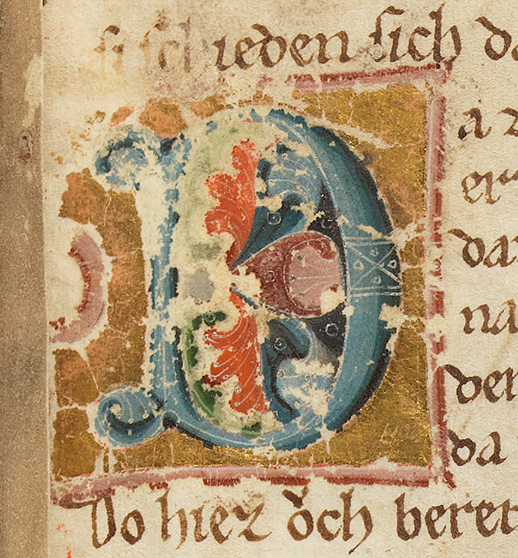 si schieden sich da
D
a
er
daz
na
der
da
Do hiez och beret